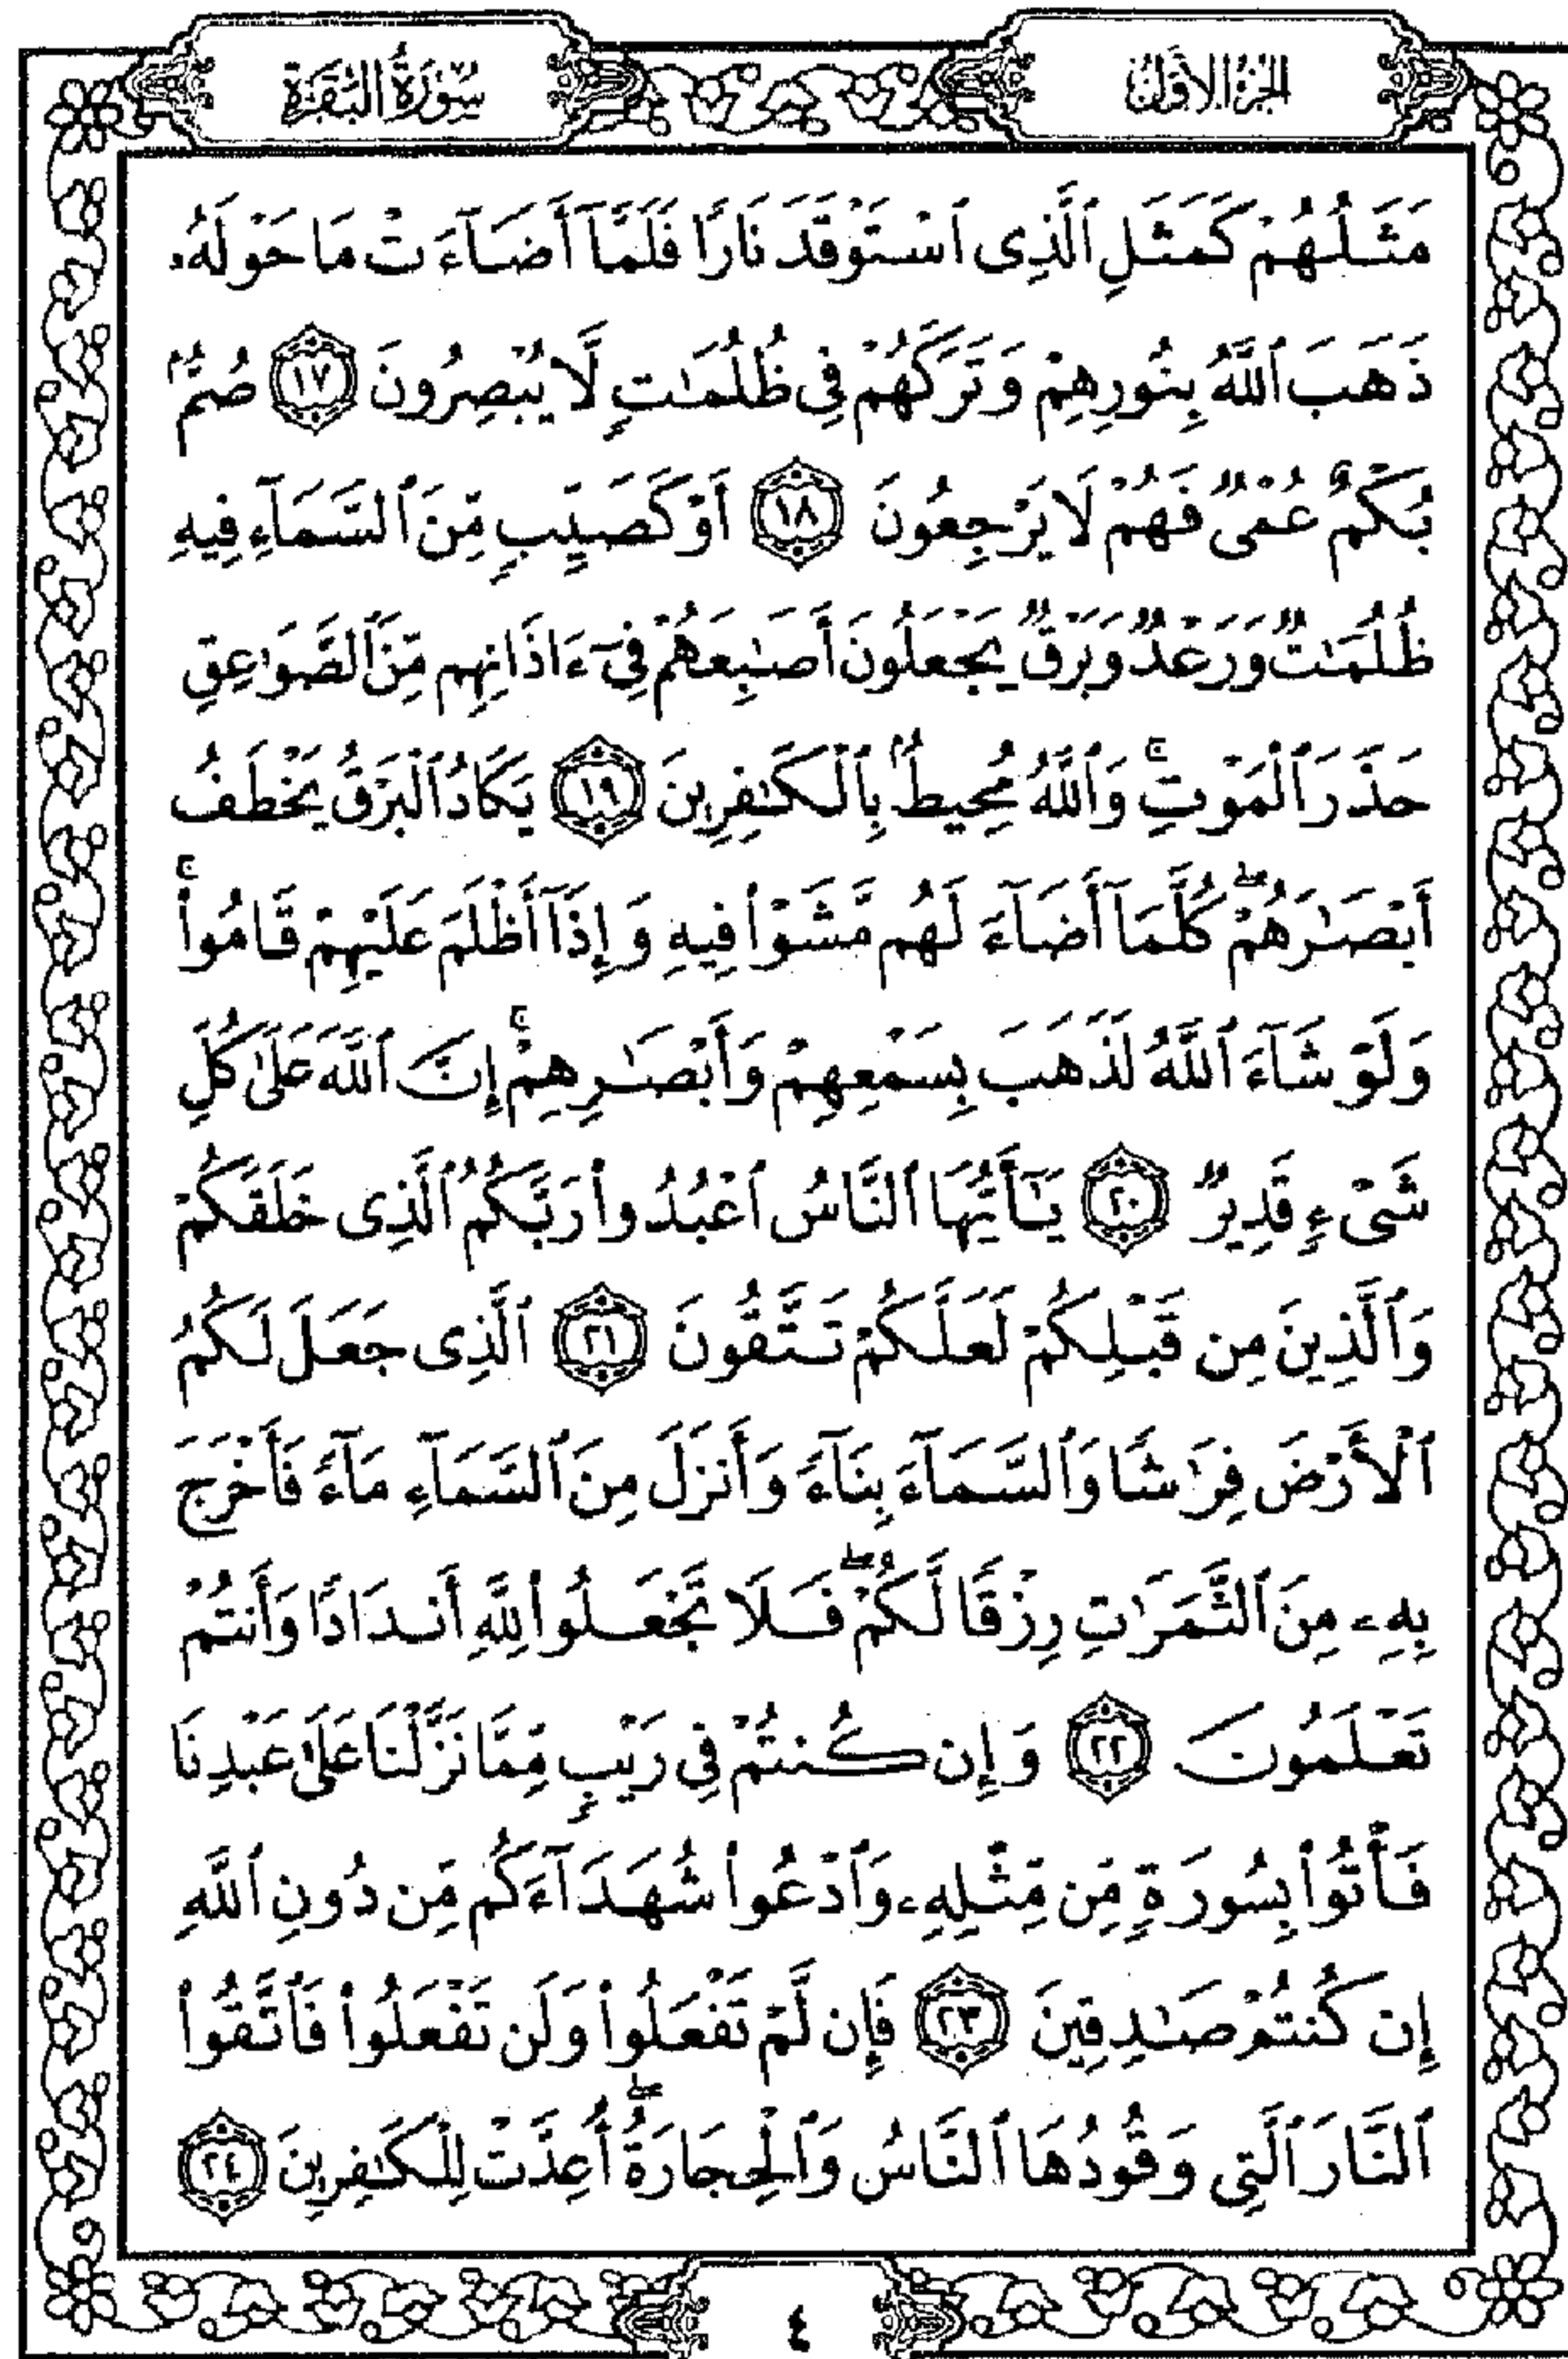 الجزء الأول
سورة البقرة
مَثَلُهُمْ كَمَثَلِ ٱلَّذِى ٱسْتَوْقَدَ نَارًا فَلَمَّآ أَضَآءَتْ مَا حَوْلَهُۥ
ذَهَبَ ٱللَّهُ بِنُورِهِمْ وَتَرَكَهُمْ فِى ظُلُمَٰتٍ لَّا يُبْصِرُونَ ١٧ صُمٌّۢ
بُكْمٌ عُمْىٌ فَهُمْ لَا يَرْجِعُونَ ١٨ أَوْ كَصَيِّبٍ مِّنَ ٱلسَّمَآءِ فِيهِ
ظُلُمَٰتٌ وَرَعْدٌ وَبَرْقٌ يَجْعَلُونَ أَصَٰبِعَهُمْ فِىٓ ءَاذَانِهِم مِّنَ ٱلصَّوَٰعِقِ
حَذَرَ ٱلْمَوْتِۚ وَٱللَّهُ مُحِيطٌۢ بِٱلْكَٰفِرِينَ ١٩ يَكَادُ ٱلْبَرْقُ يَخْطَفُ
أَبْصَٰرَهُمْۖ كُلَّمَآ أَضَآءَ لَهُم مَّشَوْا۟ فِيهِ وَإِذَآ أَظْلَمَ عَلَيْهِمْ قَامُوا۟ۚ
وَلَوْ شَآءَ ٱللَّهُ لَذَهَبَ بِسَمْعِهِمْ وَأَبْصَٰرِهِمْۚ إِنَّ ٱللَّهَ عَلَىٰ كُلِّ
شَىْءٍ قَدِيرٌ ٢٠ يَٰٓأَيُّهَا ٱلنَّاسُ ٱعْبُدُوا۟ رَبَّكُمُ ٱلَّذِى خَلَقَكُمْ
وَٱلَّذِينَ مِن قَبْلِكُمْ لَعَلَّكُمْ تَتَّقُونَ ٢١ ٱلَّذِى جَعَلَ لَكُمُ
ٱلْأَرْضَ فِرَٰشًا وَٱلسَّمَآءَ بِنَآءً وَأَنزَلَ مِنَ ٱلسَّمَآءِ مَآءً فَأَخْرَجَ
بِهِۦ مِنَ ٱلثَّمَرَٰتِ رِزْقًا لَّكُمْۖ فَلَا تَجْعَلُوا۟ لِلَّهِ أَندَادًا وَأَنتُمْ
تَعْلَمُونَ ٢٢ وَإِن كُنتُمْ فِى رَيْبٍ مِّمَّا نَزَّلْنَا عَلَىٰ عَبْدِنَا
فَأْتُوا۟ بِسُورَةٍ مِّن مِّثْلِهِۦ وَٱدْعُوا۟ شُهَدَآءَكُم مِّن دُونِ ٱللَّهِ
إِن كُنتُمْ صَٰدِقِينَ ٢٣ فَإِن لَّمْ تَفْعَلُوا۟ وَلَن تَفْعَلُوا۟ فَٱتَّقُوا۟
ٱلنَّارَ ٱلَّتِى وَقُودُهَا ٱلنَّاسُ وَٱلْحِجَارَةُۖ أُعِدَّتْ لِلْكَٰفِرِينَ ٢٤
٤